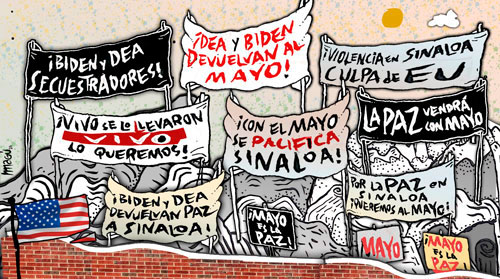 ¡BIDEN Y DEA
SECUESTRADORES!
¡DEA Y BIDEN
DEVUELVAN AL
MAYO!
¡VIOLENCIA EN SINALOA
CULPA DE EU
¡VIVO SE LO LLEVARON
VIVO
LO QUEREMOS!
¡CON EL MAYO
SE PACIFICA
SINALOA!
LA PAZ VENDRÁ
CON MAYO
¡BIDEN Y DEA
DEVUELVAN PAZ
A SINALOA!
¡MAYO
ES LA
PAZ!
POR LA PAZ EN
SINALOA
¡QUEREMOS AL MAYO!
MAYO
¡MAYO
ES LA
PAZ!